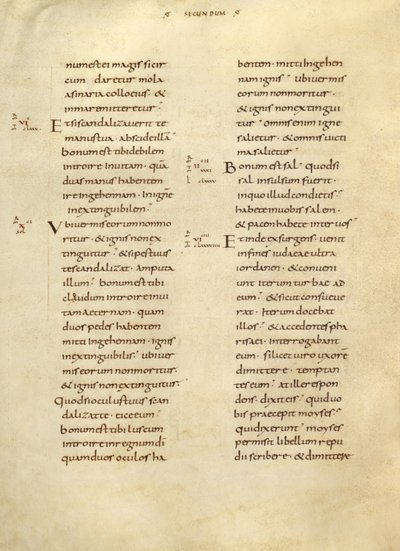 SECUNDUM
num est ei magis si cir
cum daretur mola
asinaria collo eius · &
in mare mitteretur ·
Et si scandalizaverit te
manus tua · abscide illā ·
bonum est tibi debilem
introire in vitam · quā
duas manus habentem
ire in gehennam · in ignē
inextinguibilem ·
Ubi vermis eorum non mo
ritur · & ignis non ex
tinguitur · & si pes tuus
te scandalizat · amputa
illum · bonum est tibi
claudum introire in vi
tam aeternam · quam
duo pedes habentem
mitti in gehennam · ignis
inextinguibilis · ubi ver
mis eorum non moritur ·
& ignis non extinguitur ·
Quod si oculus tuus scan
dalizat te · eice eum ·
bonum est tibi luscum
introire in regnum dī
quam duos oculos ha
bentem · mitti in gehen
nam ignis · ubi vermis
eorum non moritur ·
& ignis non extingui
tur · omnis enim igne
salietur · & omnis victi
ma salietur ·
Bonum est sal · quod si
sal insulsum fuerit ·
in quo illud condietis ·
habete in vobis salem ·
& pacem habete inter vos ·
Et inde exsurgens · venit
in fines iudaeae ultra
iordanen · & conveni
unt iterum turbae ad
eum · & sicut consueve
rat · iterum docebat
illos · & accedentes pha
risaei · interrogabant
eum · si licet viro uxorē
dimittere · temptan
tes eum · at ille respon
dens · dixit eis · quid vo
bis praecepit moyses ·
qui dixerunt · moyses
permisit libellum repu
dii scribere · & dimittere